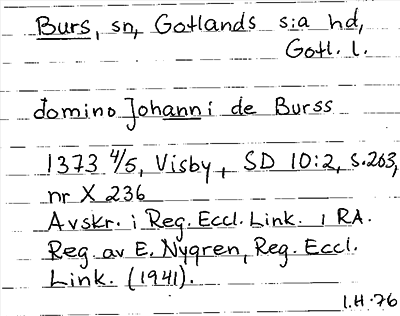 Burs, sn, Gotlands s:a hd,
Gotl. l.
domino Johanni de Burss
1373 4/5, Visby, SD 10:2, s.263,
nr X 236
Avskr. i Reg. Eccl. Link. i RA.
Reg. av E. Nygren, Reg. Eccl.
Link. (1941).
I.H.76